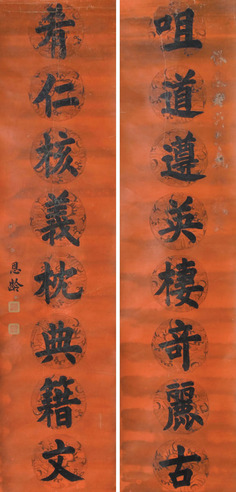 咀道遵英棲奇麗古
肴仁核義枕典籍文
恩齡